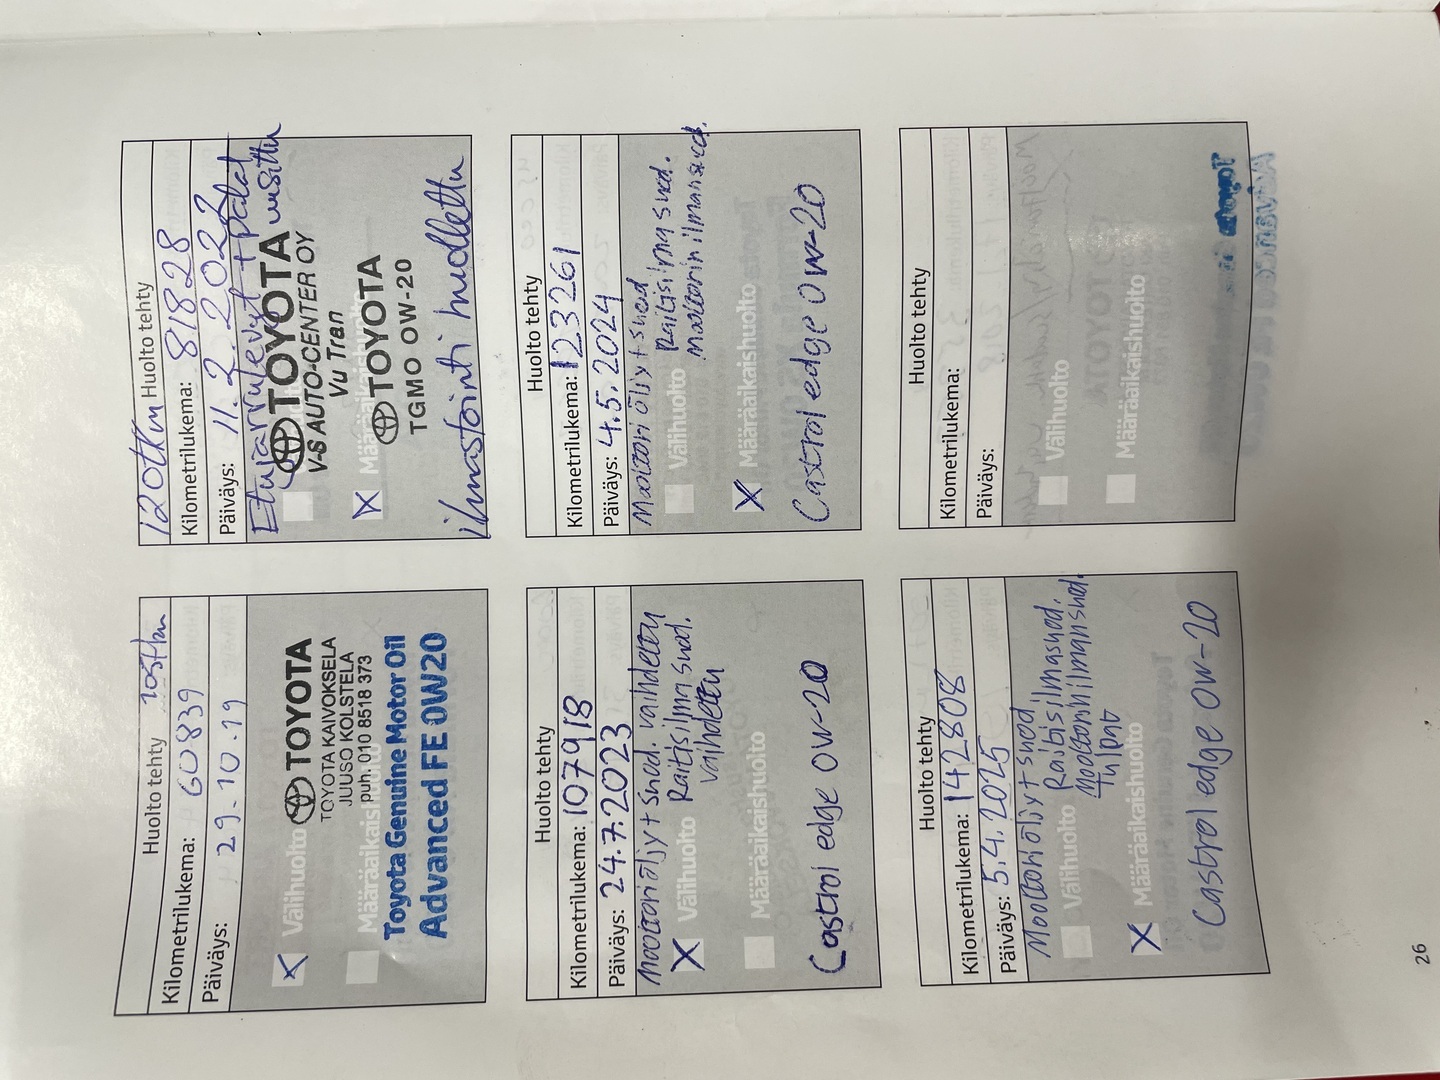 Huolto tehty 105tkm
Kilometrilukema: 60839
Päiväys: 29.10.19
Välihuolto
TOYOTA
TOYOTA KAIVOKSELA
JUUSO KOLSTELA
puh. 010 8518 373
Määräaikaishuolto
Toyota Genuine Motor Oil
Advanced FE 0W20
120tkm Huolto tehty
Kilometrilukema: 81828
Päiväys: 11.2.2022
Etujarrulevyt + palat uusittu
TOYOTA
V-S AUTO-CENTER OY
Vu Tran
Määräaikaishuolto
TOYOTA
TGMO OW-20
ilmastointi huollettu
Huolto tehty
Kilometrilukema: 107918
Päiväys: 24.7.2023
Moottoriöljy + suod. vaihdettu
Raitisilma suod.
vaihdettu
Välihuolto
Määräaikaishuolto
Castrol edge OW-20
Huolto tehty
Kilometrilukema: 123261
Päiväys: 4.5.2024
Moottoriöljy + suod
Raitisilma suod.
Moottorin ilmansuod.
Välihuolto
Määräaikaishuolto
Castrol edge OW-20
Huolto tehty
Kilometrilukema: 142808
Päiväys: 5.4.2025
Moottoriöljy + suod
Raitisilmasuod.
Moottorin ilmansuod.
Tulpat
Välihuolto
Määräaikaishuolto
Castrol edge OW-20
Huolto tehty
Kilometrilukema:
Päiväys:
Välihuolto
Määräaikaishuolto
26